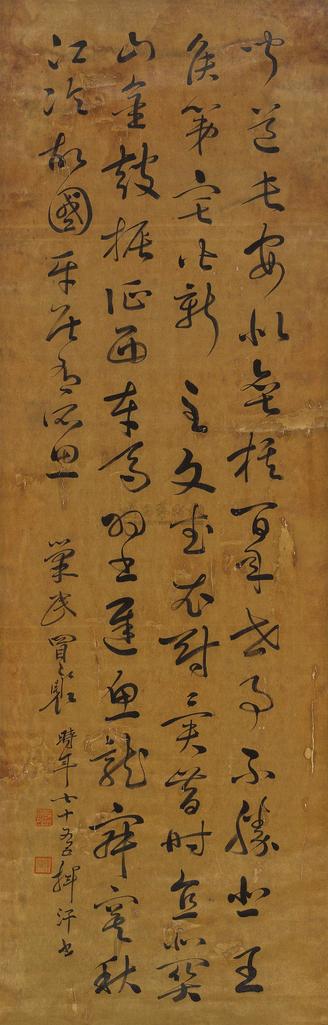 聞道長安似弈棋百年世事不勝悲王
侯第宅皆新主文武衣冠異昔時直北關
山金鼓振征西車馬羽書遲魚龍寂寞秋
江冷故國平居有所思 巢民冒襄 時年七十五揮汗書